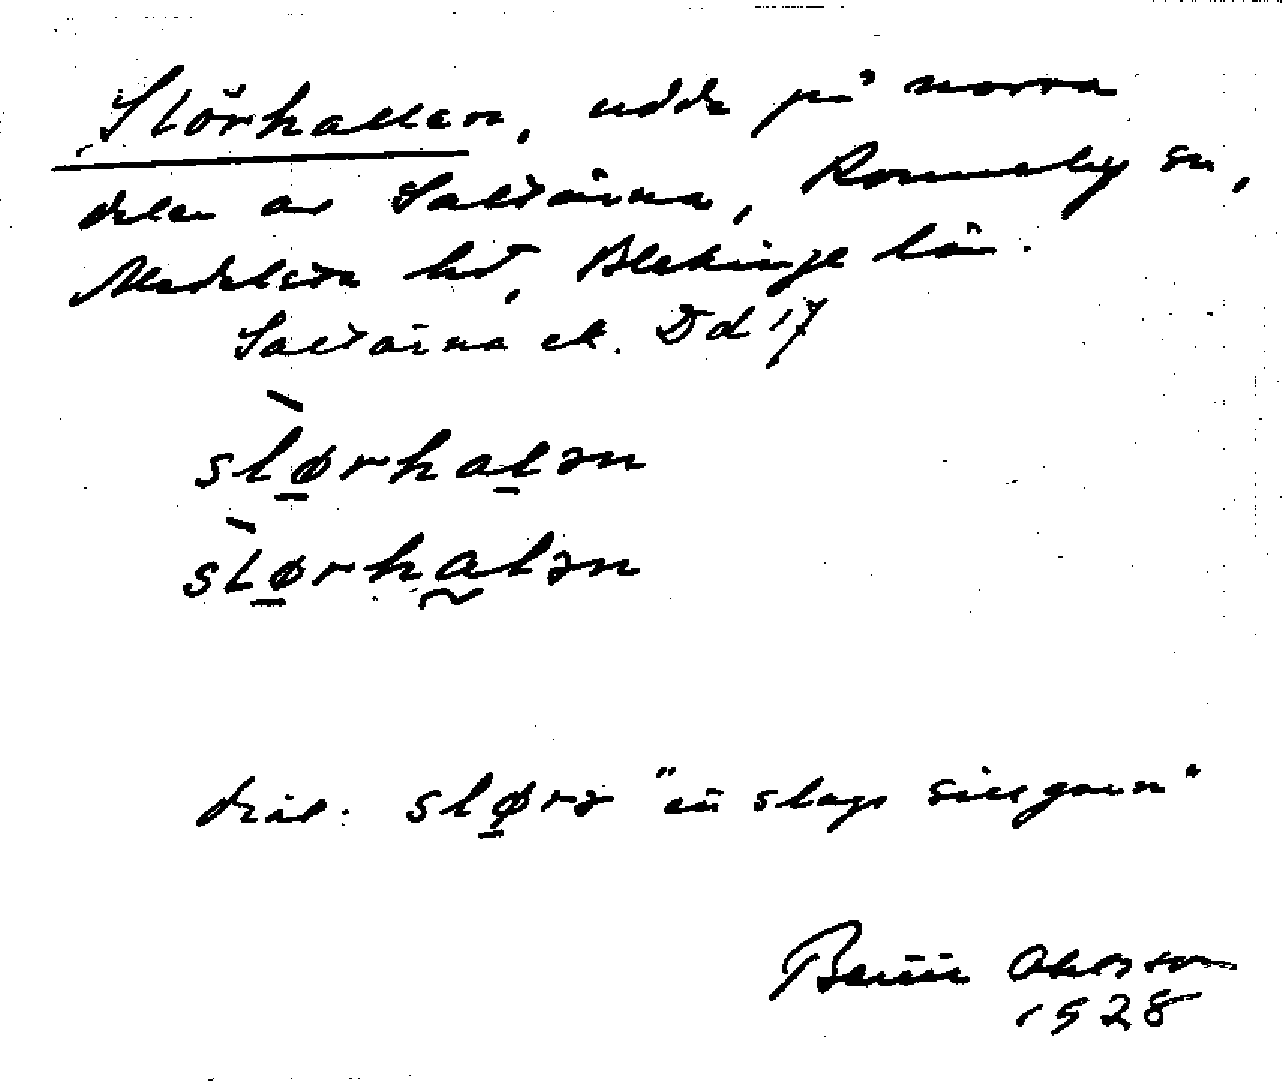 Slörhallen, udde på norra
delen av Saltärna, Ronneby sn,
Medelsta hd, Blekinge län.
Saltärna ek. Dd 17
slørhalən
slørhalən
dial. slørə "en slags sillgarn"
Bertil
1928